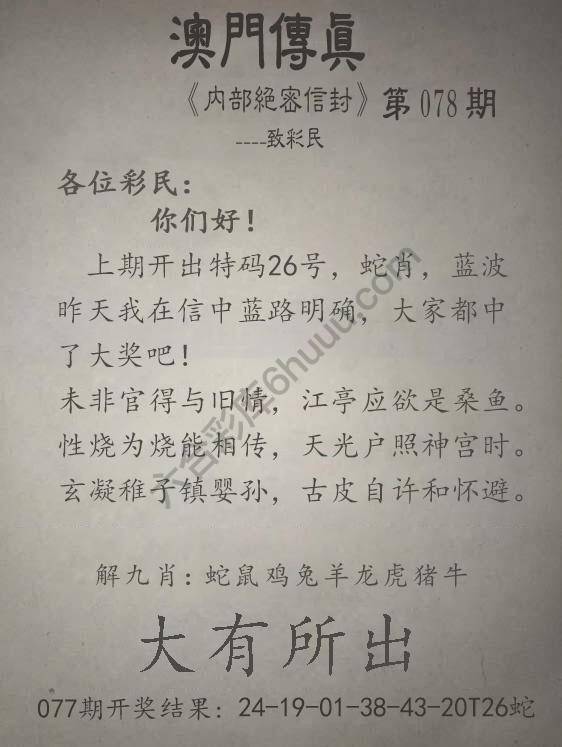 澳門傳真
《内部絕密信封》第078期
----致彩民
各位彩民：
你们好！
上期开出特码26号，蛇肖，蓝波
昨天我在信中蓝路明确，大家都中
了大奖吧！
未非官得与旧情，江亭应欲是桑鱼。
性烧为烧能相传，天光户照神宫时。
玄凝稚子镇婴孙，古皮自许和怀避。
解九肖：蛇鼠鸡兔羊龙虎猪牛
大有所出
077期开奖结果：24-19-01-38-43-20T26蛇
六合彩库6huuu.com